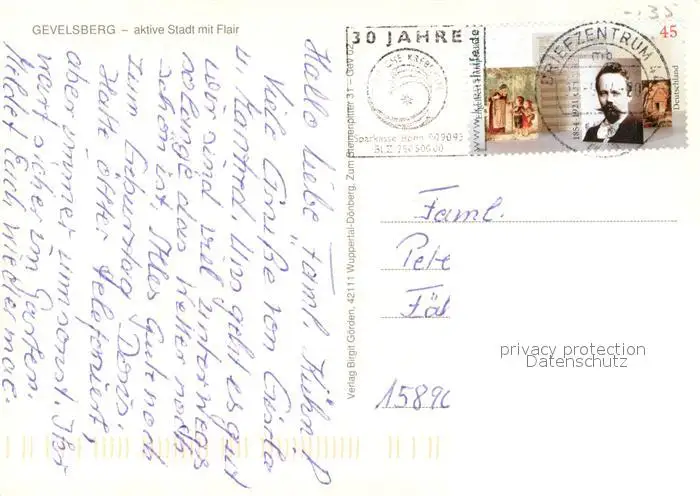 GEVELSBERG – aktive Stadt mit Flair
Hallo liebe Faml. Kühn!
Viele Grüße von Gisela
u. Konrad. Uns geht es gut
wir sind viel unterwegs
solange das Wetter noch
schön ist. Alles Gute noch
zum Geburtstag Doris.
Hatte öfter telefoniert,
aber immer umsonst. Ihr
wart sicher im Garten.
Meldet Euch wieder mal.
Verlag Birgit Görden, 42111 Wuppertal-Dönberg, Zum Brennenpütter 31 – Gev 02
30 JAHRE
DEUTSCHE KREBSHILFE
Sparkasse Bonn 909093
BLZ 38050000
www.
BRIEFZENTRUM
mb
Engelbert Humperdinck
1854-1921
45
Deutschland
Faml.
Pete
Fäl
1589c
privacy protection
Datenschutz